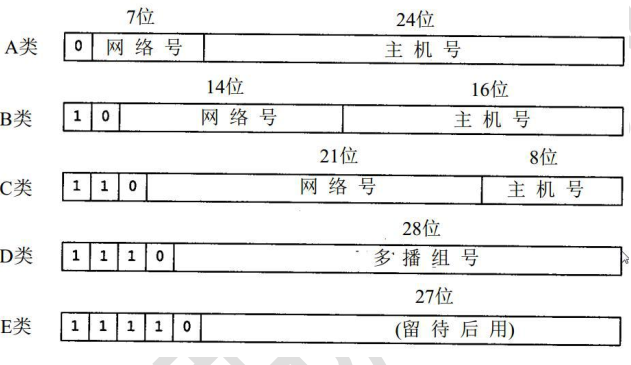 7位 24位
A类 0 网络号 主机号
14位 16位
B类 1 0 网络号 主机号
21位 8位
C类 1 1 0 网络号 主机号
28位
D类 1 1 1 0 多播组号
27位
E类 1 1 1 1 0 (留待后用)